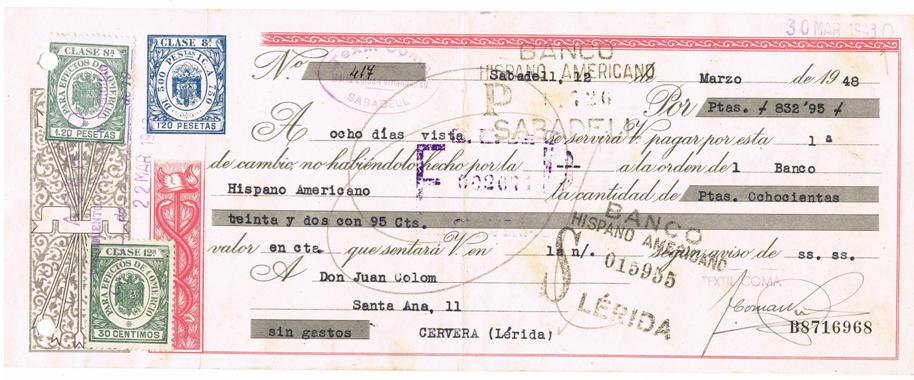 30 MAR
CLASE 8ª
PARA EFECTOS DE COMERCIO
1'20 PESETAS
CLASE 8ª
DE 500 PESTAS 1C.A A 750
1'20 PESETAS
BANCO
HISPANO AMERICANO
P
SABADELL
SABADELL
22 MAR
Nº 417 Sabadell, 12 Marzo de 1948
Por Ptas. ≠ 832'95 ≠
A ocho días vista. se servirá V. pagar por esta 1ª
de cambio, no habiéndolo hecho por la --- a la orden del Banco
Hispano Americano la cantidad de Ptas. Ochocientas
teinta y dos con 95 Cts.
valor en cta que sentará V. en la n/. según aviso de ss. ss.
BANCO
HISPANO AMERICANO
015955
LÉRIDA
TEXTIL COMA
A Don Juan Colom
Santa Ana, 11
sin gastos CERVERA (Lérida)
B8716968
CLASE 12ª
PARA EFECTOS DE COMERCIO
30 CENTIMOS